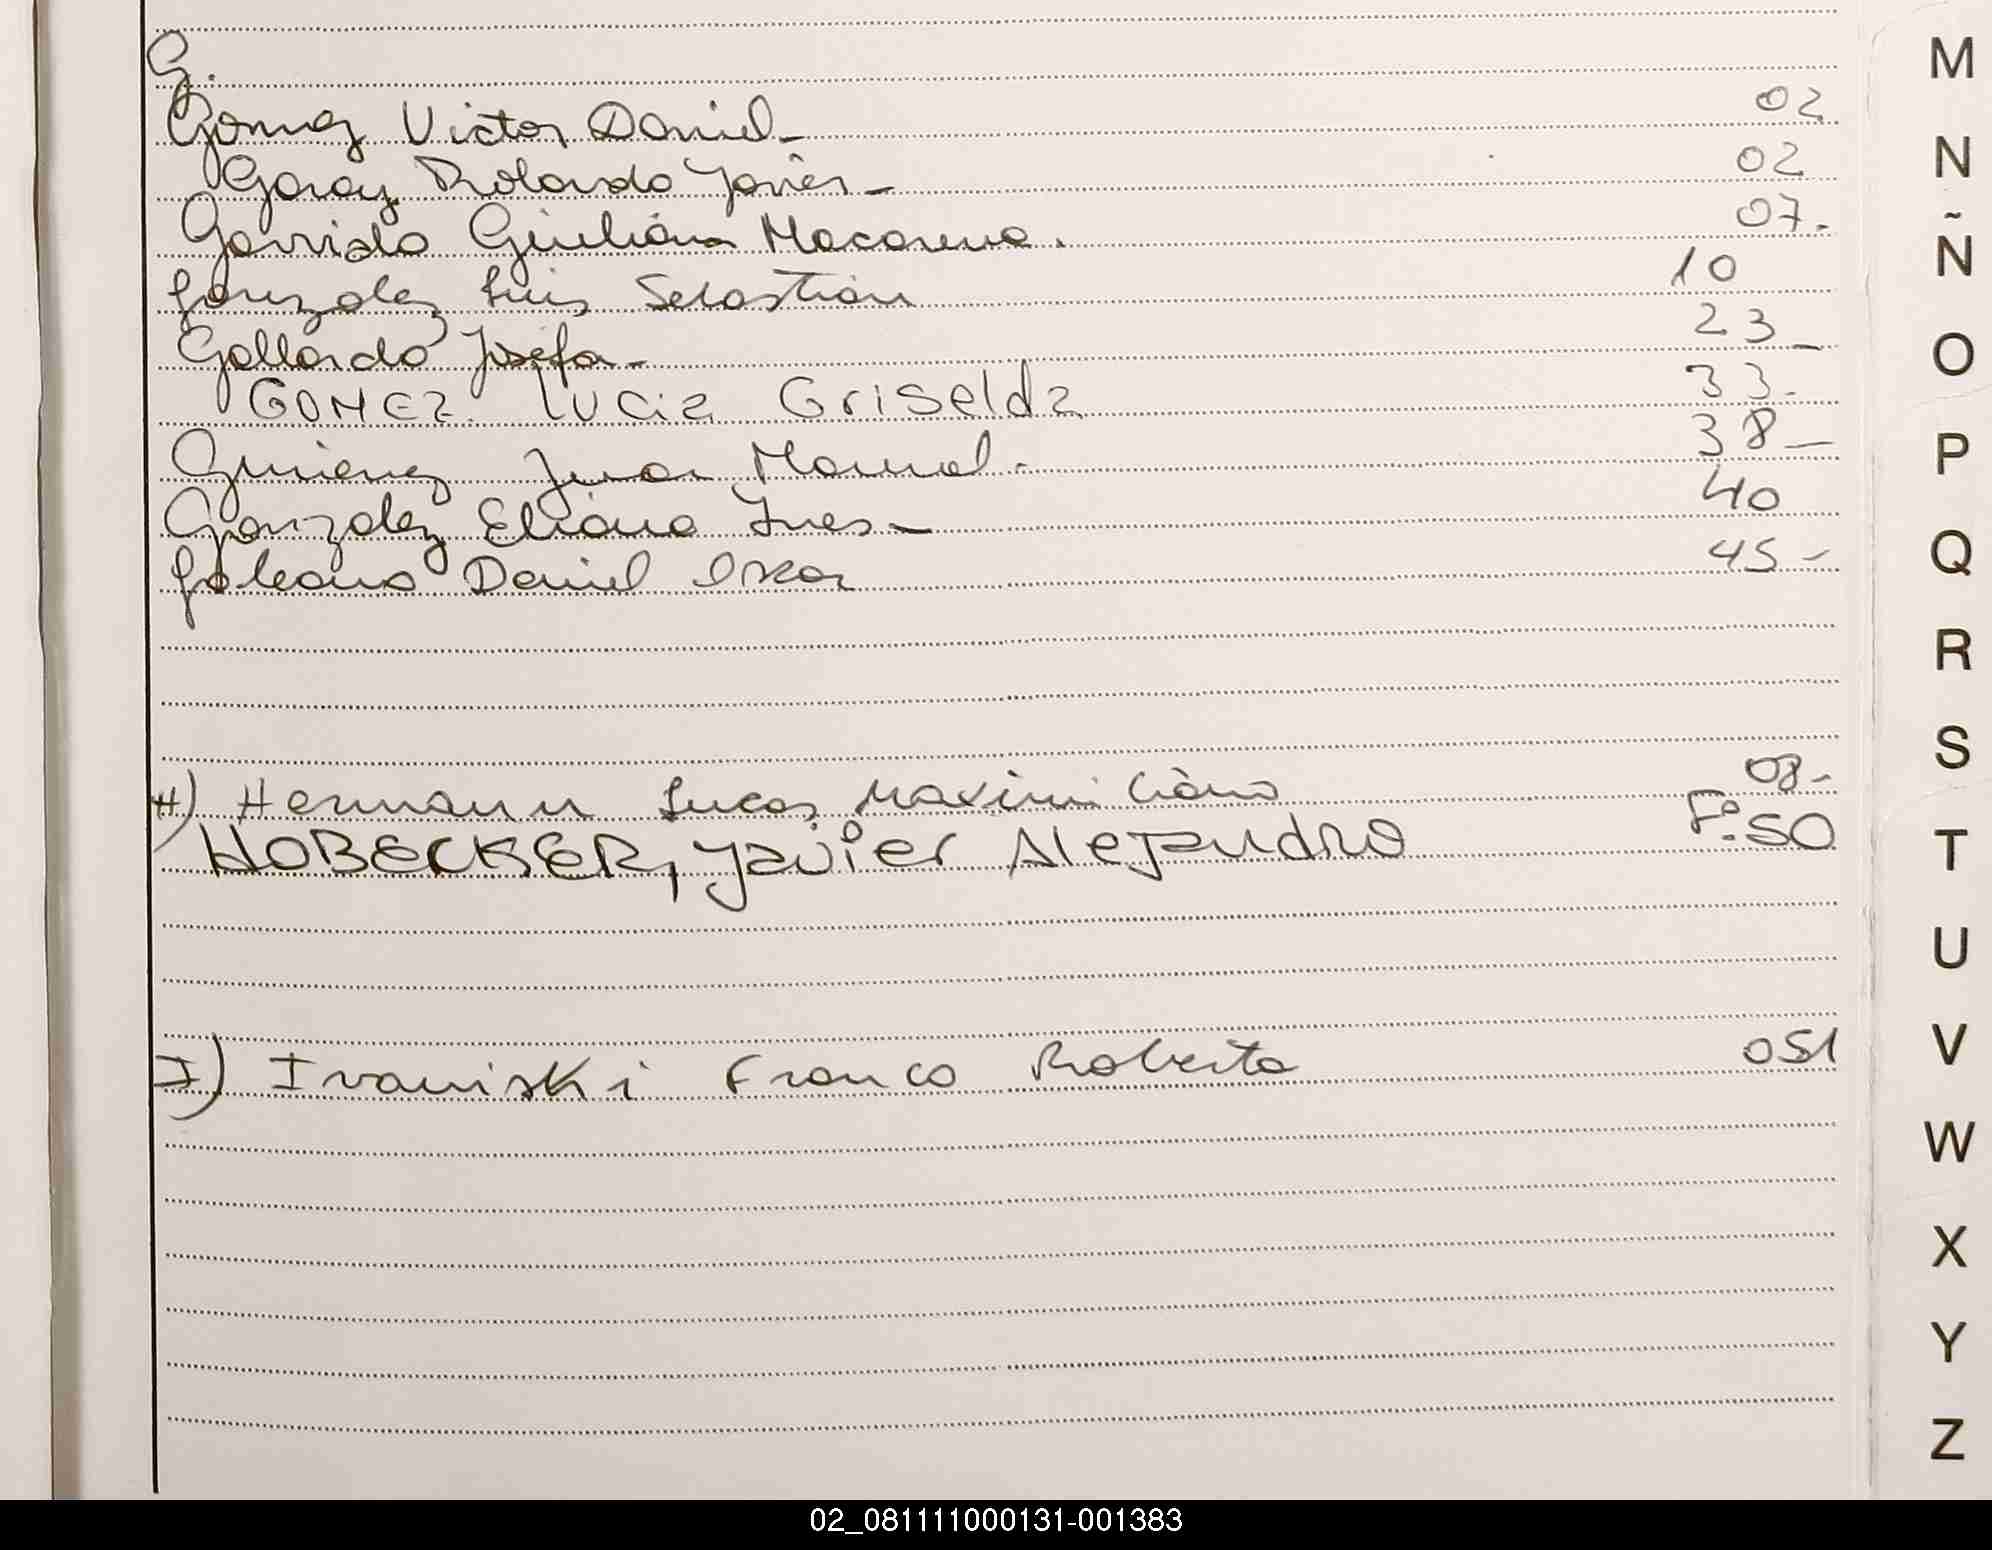 G.
Gomez Victor Daniel- 02
Garay Rolando Javier- 02
Garrido Giuliana Macarena. 07.
Gonzalez Luis Sebastian 10
Gallardo Josefa- 23-
GOMEZ. LUCIA GriSelda 33.
Gimenez Juan Manuel. 38-
Gonzalez Eliana Ines- 40
Galeano Daniel Oscar 45-
H) Hermann Lucas Maximiliano 08-
HOBECKER, Javier Alejandro Fº:50
I) Ivaniski Franco Roberto 051
M
N
Ñ
O
P
Q
R
S
T
U
V
W
X
Y
Z
02_081111000131-001383